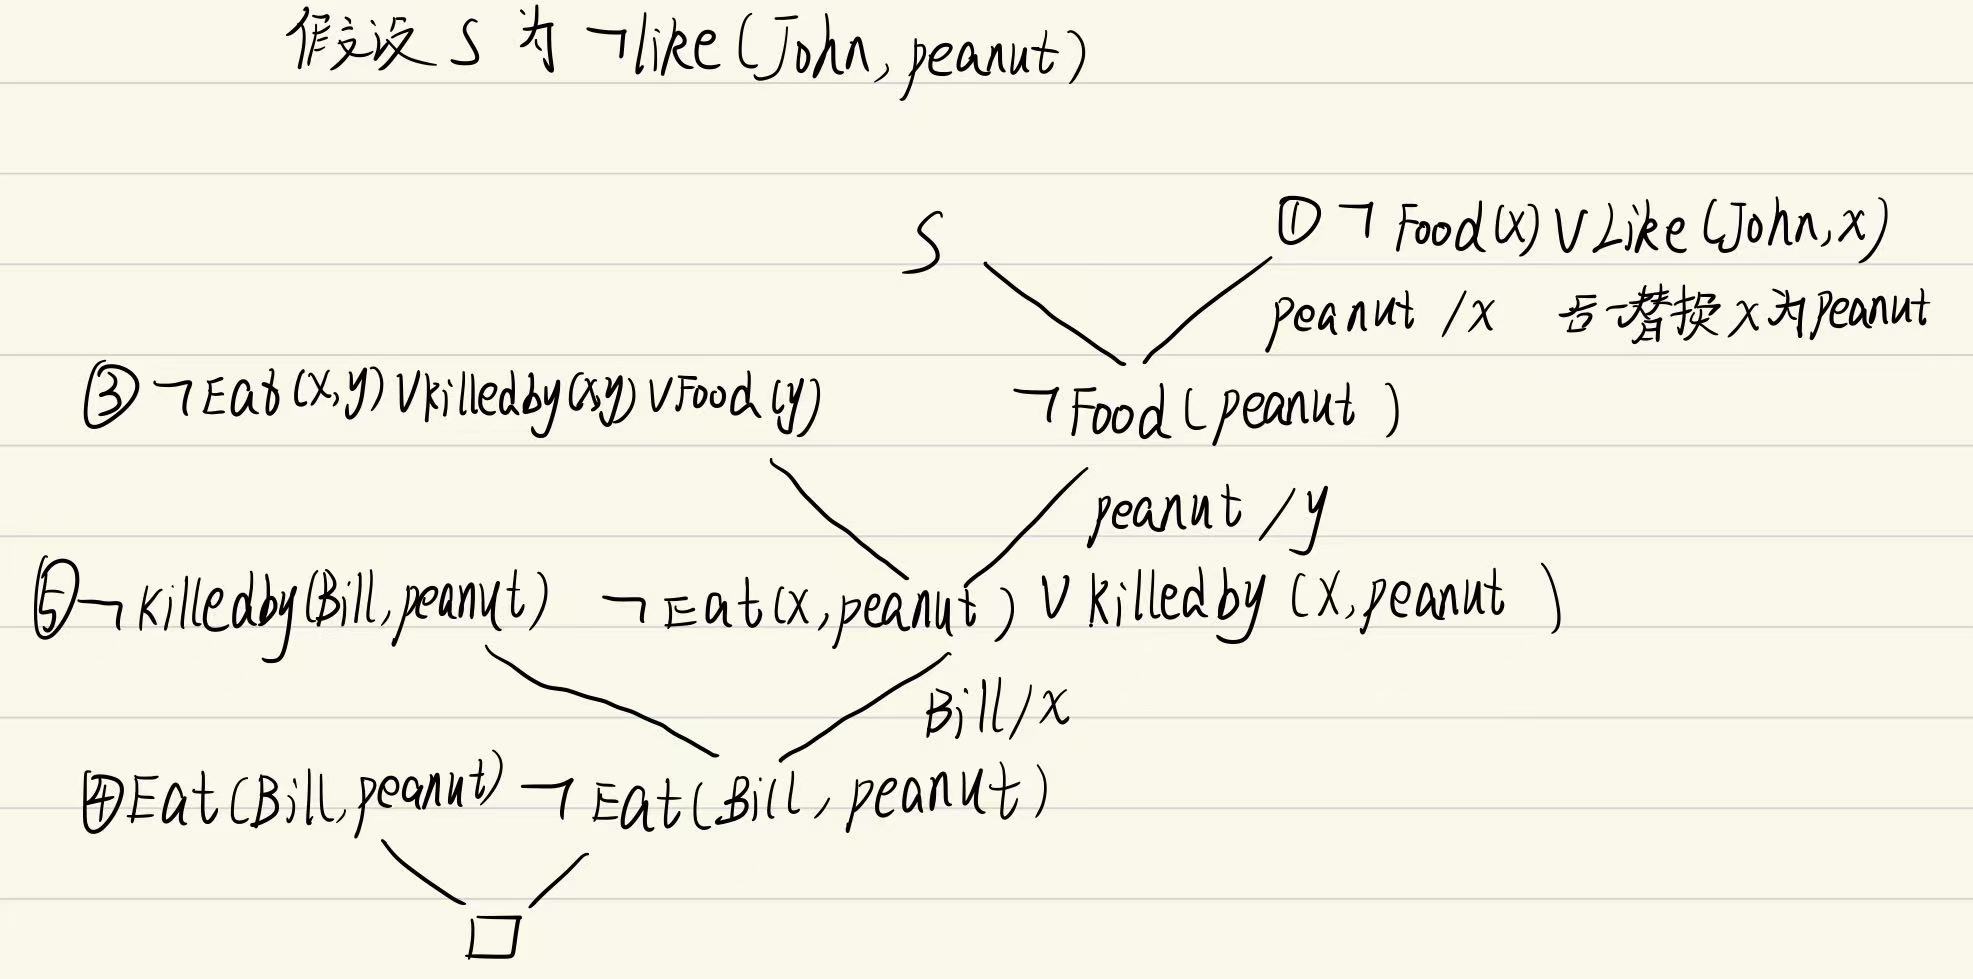 假设 S 为 ¬like(John, peanut)
S ① ¬ Food(x) ∨ Like(John, x)
peanut /x 替换 x 为 peanut
③ ¬Eat(x,y) ∨ killedby(x,y) ∨ Food(y) ¬Food(peanut)
peanut /y
⑤ ¬ killedby(Bill, peanut) ¬ Eat(x, peanut) ∨ killed by (x, peanut)
Bill/x
④ Eat(Bill, peanut) ¬ Eat(Bill, peanut)
□